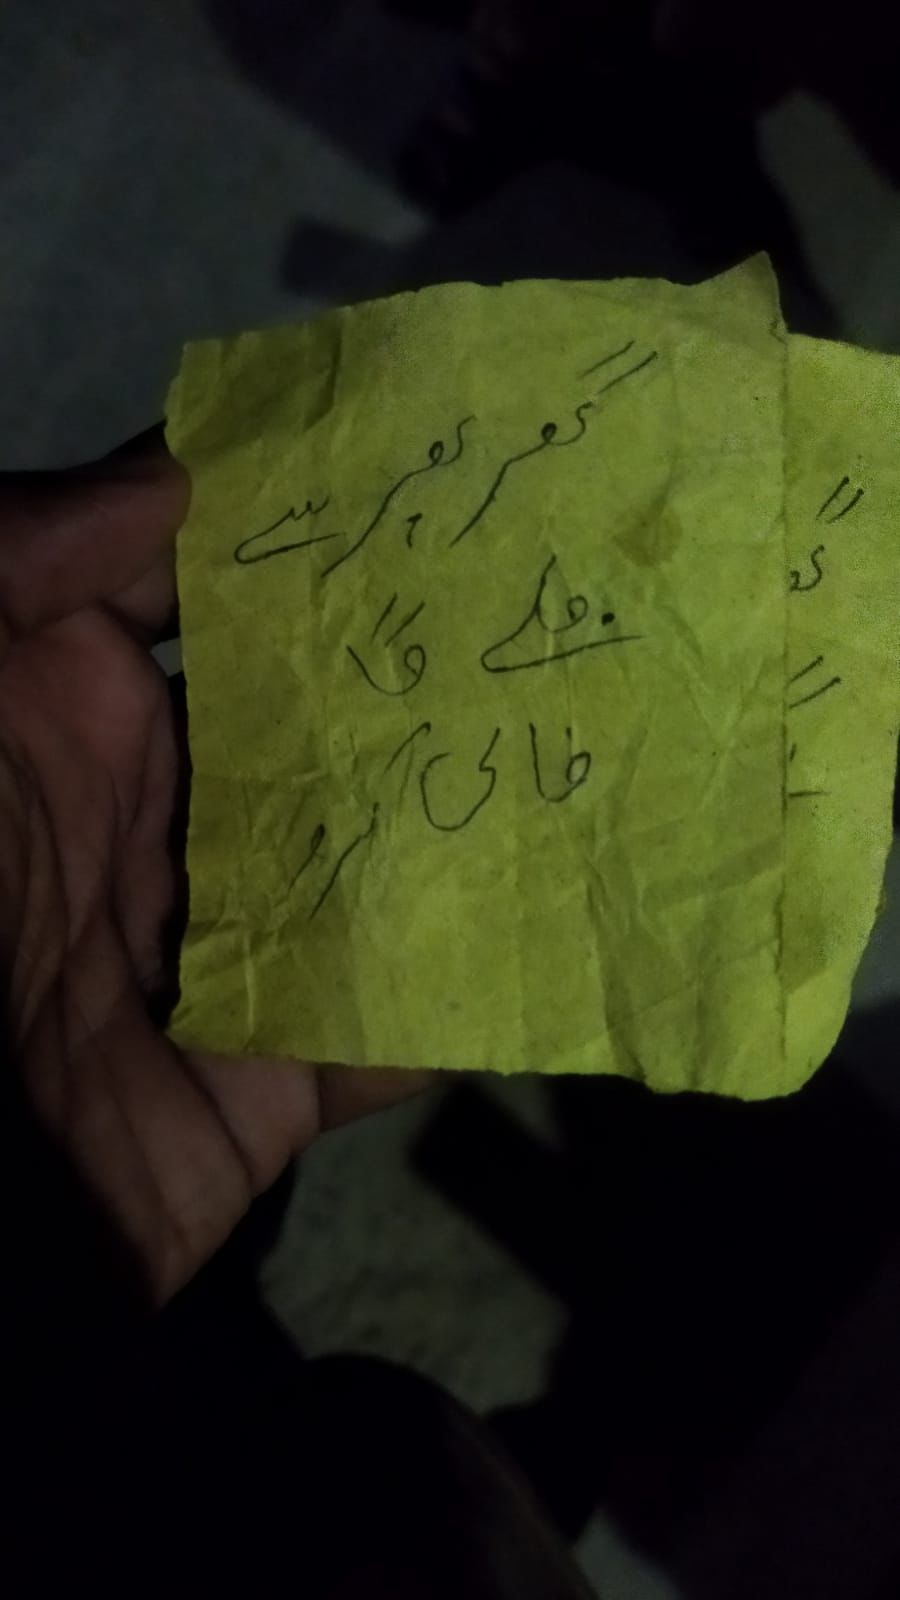 گھر پھر سے
جلے گا
خالی کرو